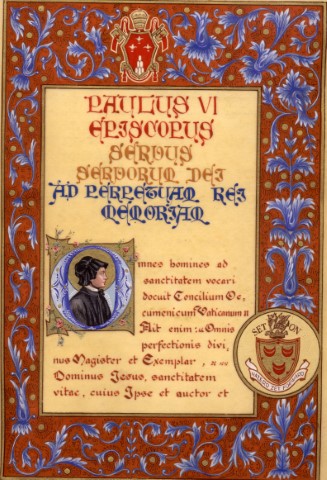 PAULUS VI
EPISCOPUS
SERVUS
SERVORUM DEI
AD PERPETUAM REI
MEMORIAM
Omnes homines ad
sanctitatem vocari
docuit Concilium Oe,
cumenicum Vaticanum II
Ait enim: «Omnis
perfectionis divi,
nus Magister et Exemplar,
Dominus Jesus, sanctitatem
vitae, cuius Ipse et auctor et
SETON
HAZARD ZET FORWARD